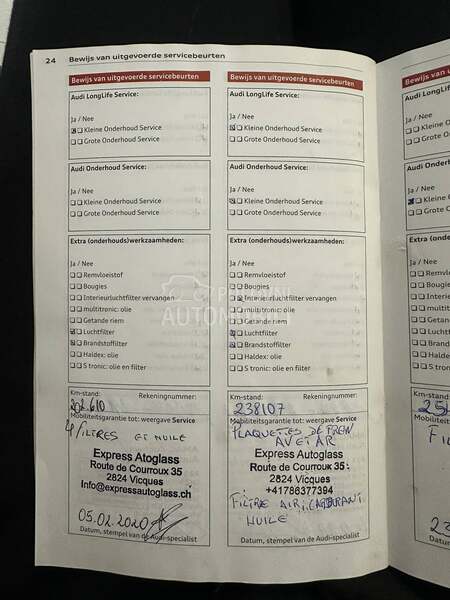 24 Bewijs van uitgevoerde servicebeurten
Bewijs van uitgevoerde servicebeurten
Audi LongLife Service:
Ja / Nee
Kleine Onderhoud Service
Grote Onderhoud Service
Audi Onderhoud Service:
Ja / Nee
Kleine Onderhoud Service
Grote Onderhoud Service
Extra (onderhouds)werkzaamheden:
Ja / Nee
Remvloeistof
Bougies
Interieurluchtfilter vervangen
multitronic: olie
Getande riem
Luchtfilter
Brandstoffilter
Haldex: olie
S tronic: olie en filter
Km-stand: Rekeningnummer:
202.610
Mobiliteitsgarantie tot: weergave Service
4 FILTRES ET HUILE
Express Atoglass
Route de Courroux 35
2824 Vicques
Info@expressautoglass.ch
05.02.2020
Datum, stempel van de Audi-specialist
Bewijs van uitgevoerde servicebeurten
Audi LongLife Service:
Ja / Nee
Kleine Onderhoud Service
Grote Onderhoud Service
Audi Onderhoud Service:
Ja / Nee
Kleine Onderhoud Service
Grote Onderhoud Service
Extra (onderhouds)werkzaamheden:
Ja / Nee
Remvloeistof
Bougies
Interieurluchtfilter vervangen
multitronic: olie
Getande riem
Luchtfilter
Brandstoffilter
Haldex: olie
S tronic: olie en filter
Km-stand: Rekeningnummer:
238107
Mobiliteitsgarantie tot: weergave Service
PLAQUETTES DE FREIN
AV ET AR
Express Autoglass
Route de Courroux 35
2824 Vicques
+41786377394
FILTRE AIR, CARBURANT
HUILE
Datum, stempel van de Audi-specialist
Bewijs van
Audi LongLife
Ja / Nee
Kleine O
Grote On
Audi Onderh
Ja / Nee
Kleine O
Grote On
Extra (onder
Ja / Nee
Remvloe
Bougies
Interieu
multitr
Getande
Luchtfil
Brandst
Haldex:
S tronic
Km-stand:
Mobiliteitsg
Datum, st
AUTOMOBILI